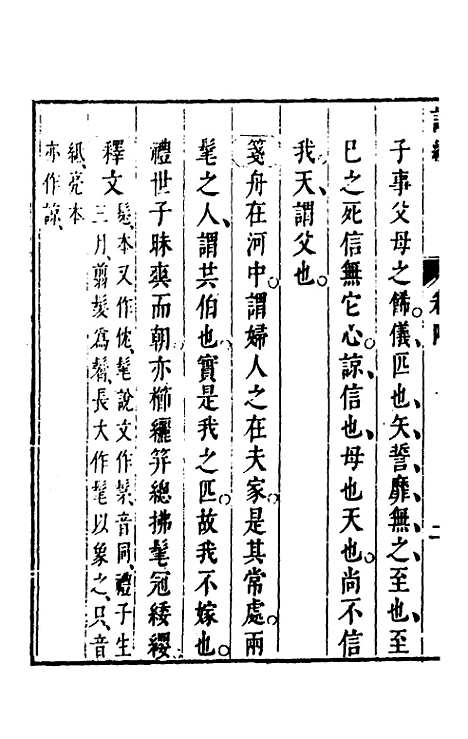 子事父母之飾儀匹也矢誓靡無之至也至
已之死信無它心諒信也母也天也尚不信
我天謂父也
箋舟在河中謂婦人之在夫家是其常處兩
髦之人謂共伯也實是我之匹故我不嫁也
禮世子昧爽而朝亦櫛纚笄總拂髦冠緌纓
釋文髧本又作㐸髦說文作髳音同禮子生
三月翦髮為鬌長大作髦以象之只音
紙亮本
亦作諒